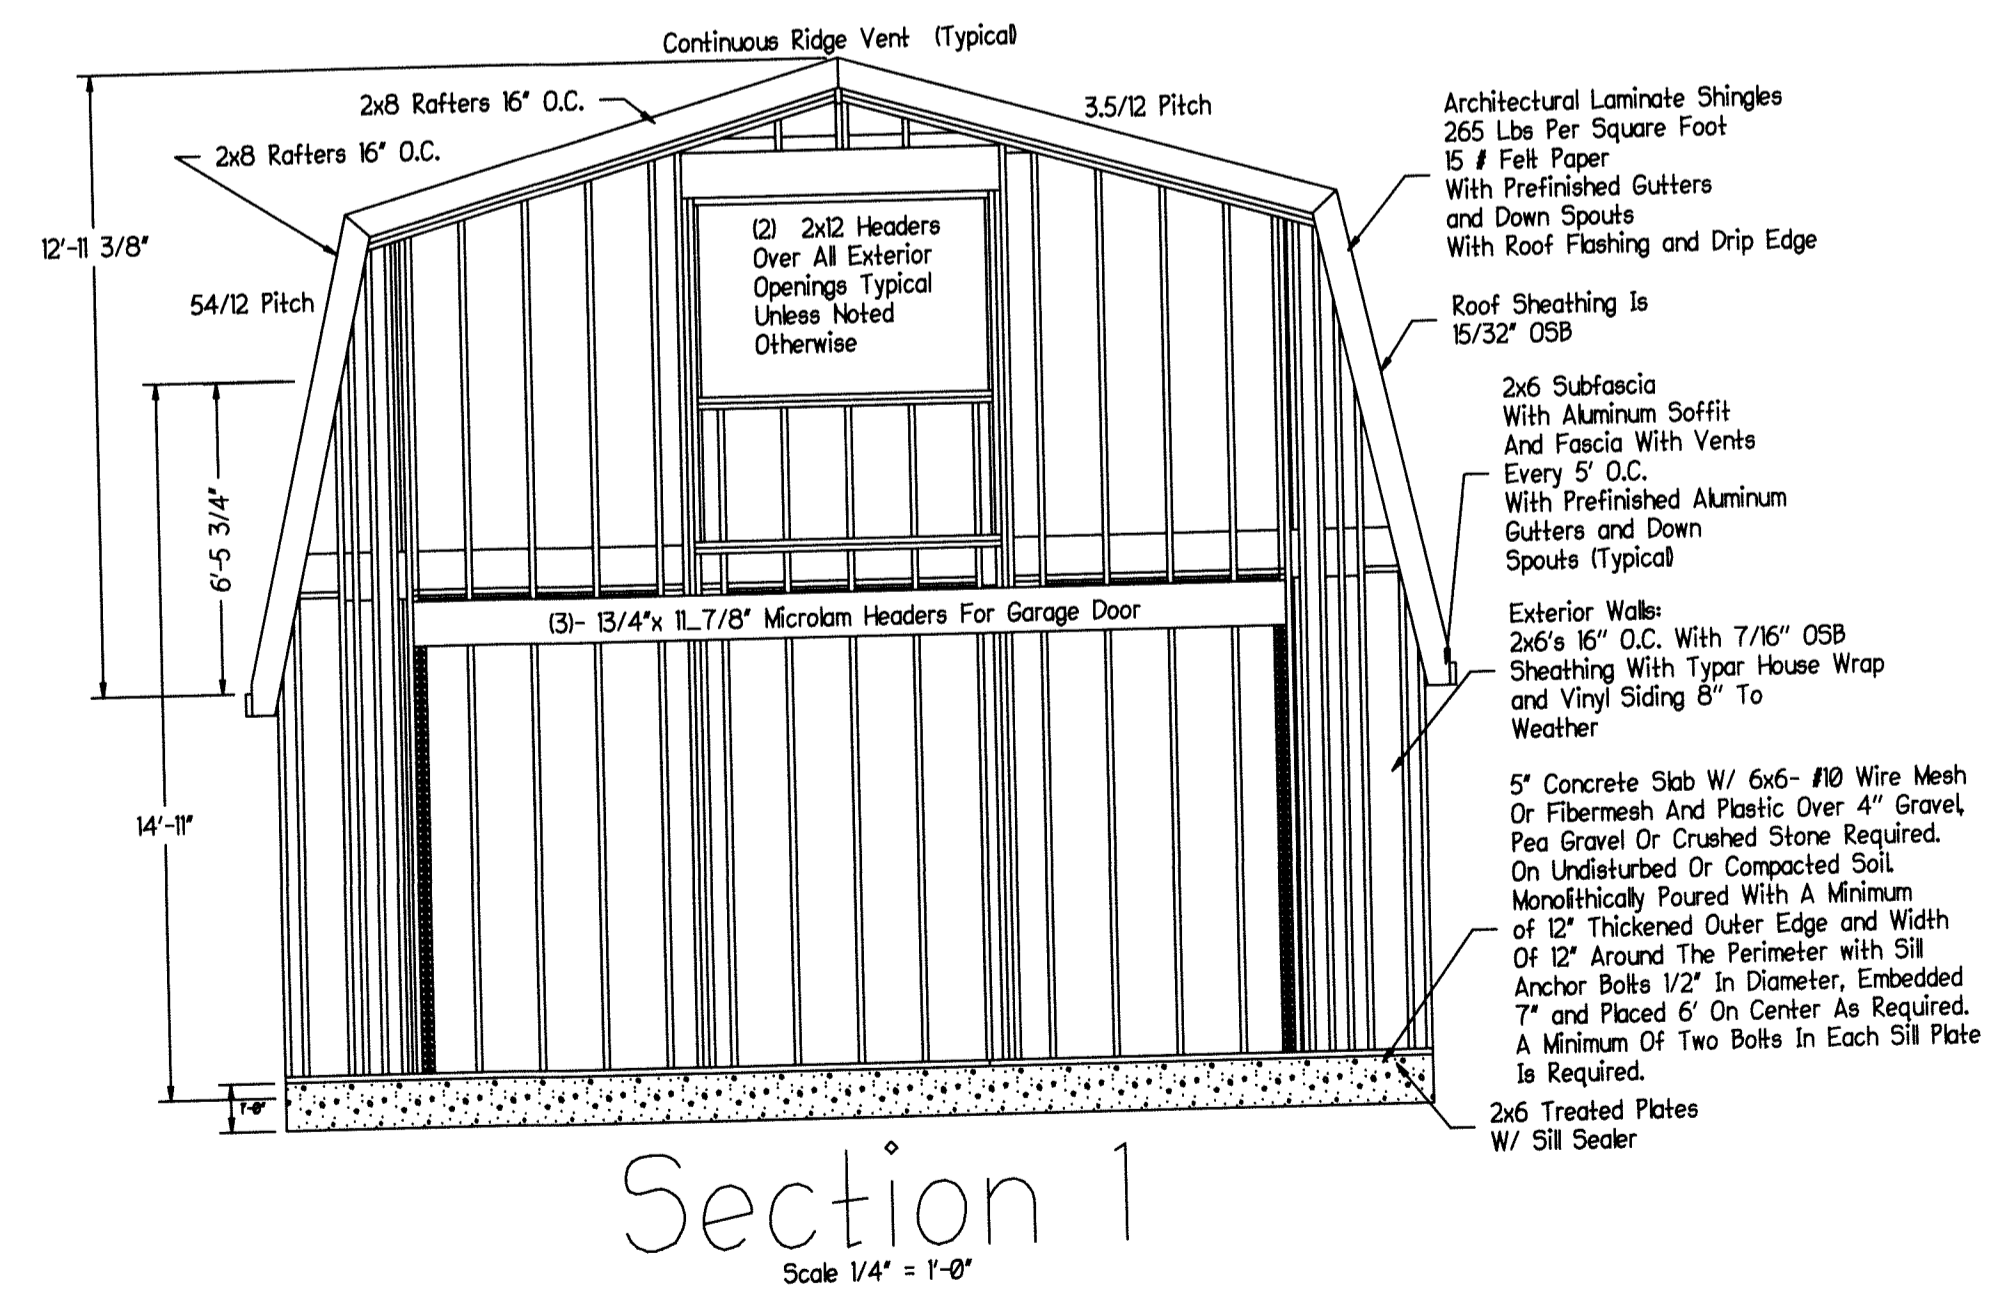 Continuous Ridge Vent (Typical)
2x8 Rafters 16" O.C.
2x8 Rafters 16" O.C.
3.5/12 Pitch
12'-11 3/8"
54/12 Pitch
6'-5 3/4"
14'-11"
1'-0"
(2) 2x12 Headers
Over All Exterior
Openings Typical
Unless Noted
Otherwise
(3)- 13/4"x 11_7/8" Microlam Headers For Garage Door
Architectural Laminate Shingles
265 Lbs Per Square Foot
15 # Felt Paper
With Prefinished Gutters
and Down Spouts
With Roof Flashing and Drip Edge
Roof Sheathing Is
15/32" OSB
2x6 Subfascia
With Aluminum Soffit
And Fascia With Vents
Every 5' O.C.
With Prefinished Aluminum
Gutters and Down
Spouts (Typical)
Exterior Walls:
2x6's 16" O.C. With 7/16" OSB
Sheathing With Typar House Wrap
and Vinyl Siding 8" To
Weather
5" Concrete Slab W/ 6x6- #10 Wire Mesh
Or Fibermesh And Plastic Over 4" Gravel,
Pea Gravel Or Crushed Stone Required.
On Undisturbed Or Compacted Soil.
Monolithically Poured With A Minimum
of 12" Thickened Outer Edge and Width
Of 12" Around The Perimeter with Sill
Anchor Bolts 1/2" In Diameter, Embedded
7" and Placed 6' On Center As Required.
A Minimum Of Two Bolts In Each Sill Plate
Is Required.
2x6 Treated Plates
W/ Sill Sealer
Section 1
Scale 1/4" = 1'-0"